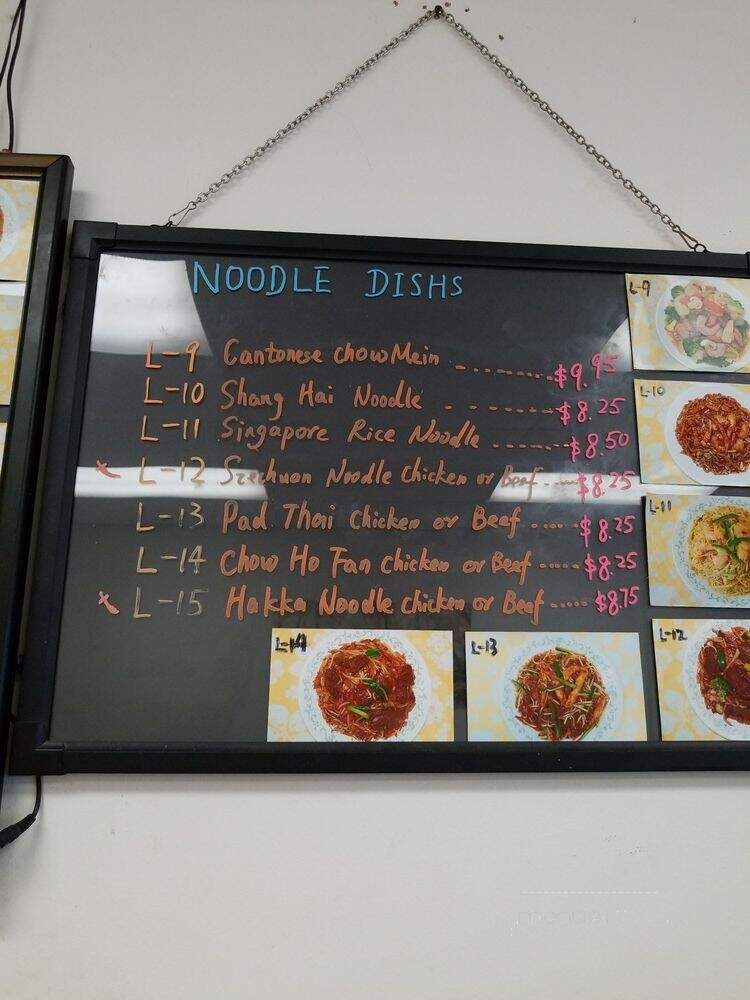 NOODLE DISHS
L-9 Cantonese chow Mein ........ $9.95
L-10 Shang Hai Noodle ........ $8.25
L-11 Singapore Rice Noodle ....... $8.50
L-12 Szechuan Noodle Chicken or Beef ..... $8.25
L-13 Pad Thai Chicken or Beef ..... $8.25
L-14 Chow Ho Fan chicken or Beef ..... $8.25
L-15 Hakka Noodle chicken or Beef ..... $8.75
L-9
L-10
L-11
L-12
L-14
L-13